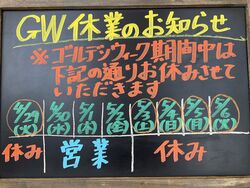 GW休業のお知らせ
※ゴールデンウィーク期間中は
下記の通りお休みさせて
いただきます
4/29 4/30 5/1 5/2 5/3 5/4 5/5 5/6
(火) (水) (木) (金) (土) (日) (月) (火)
休み 営業 休み